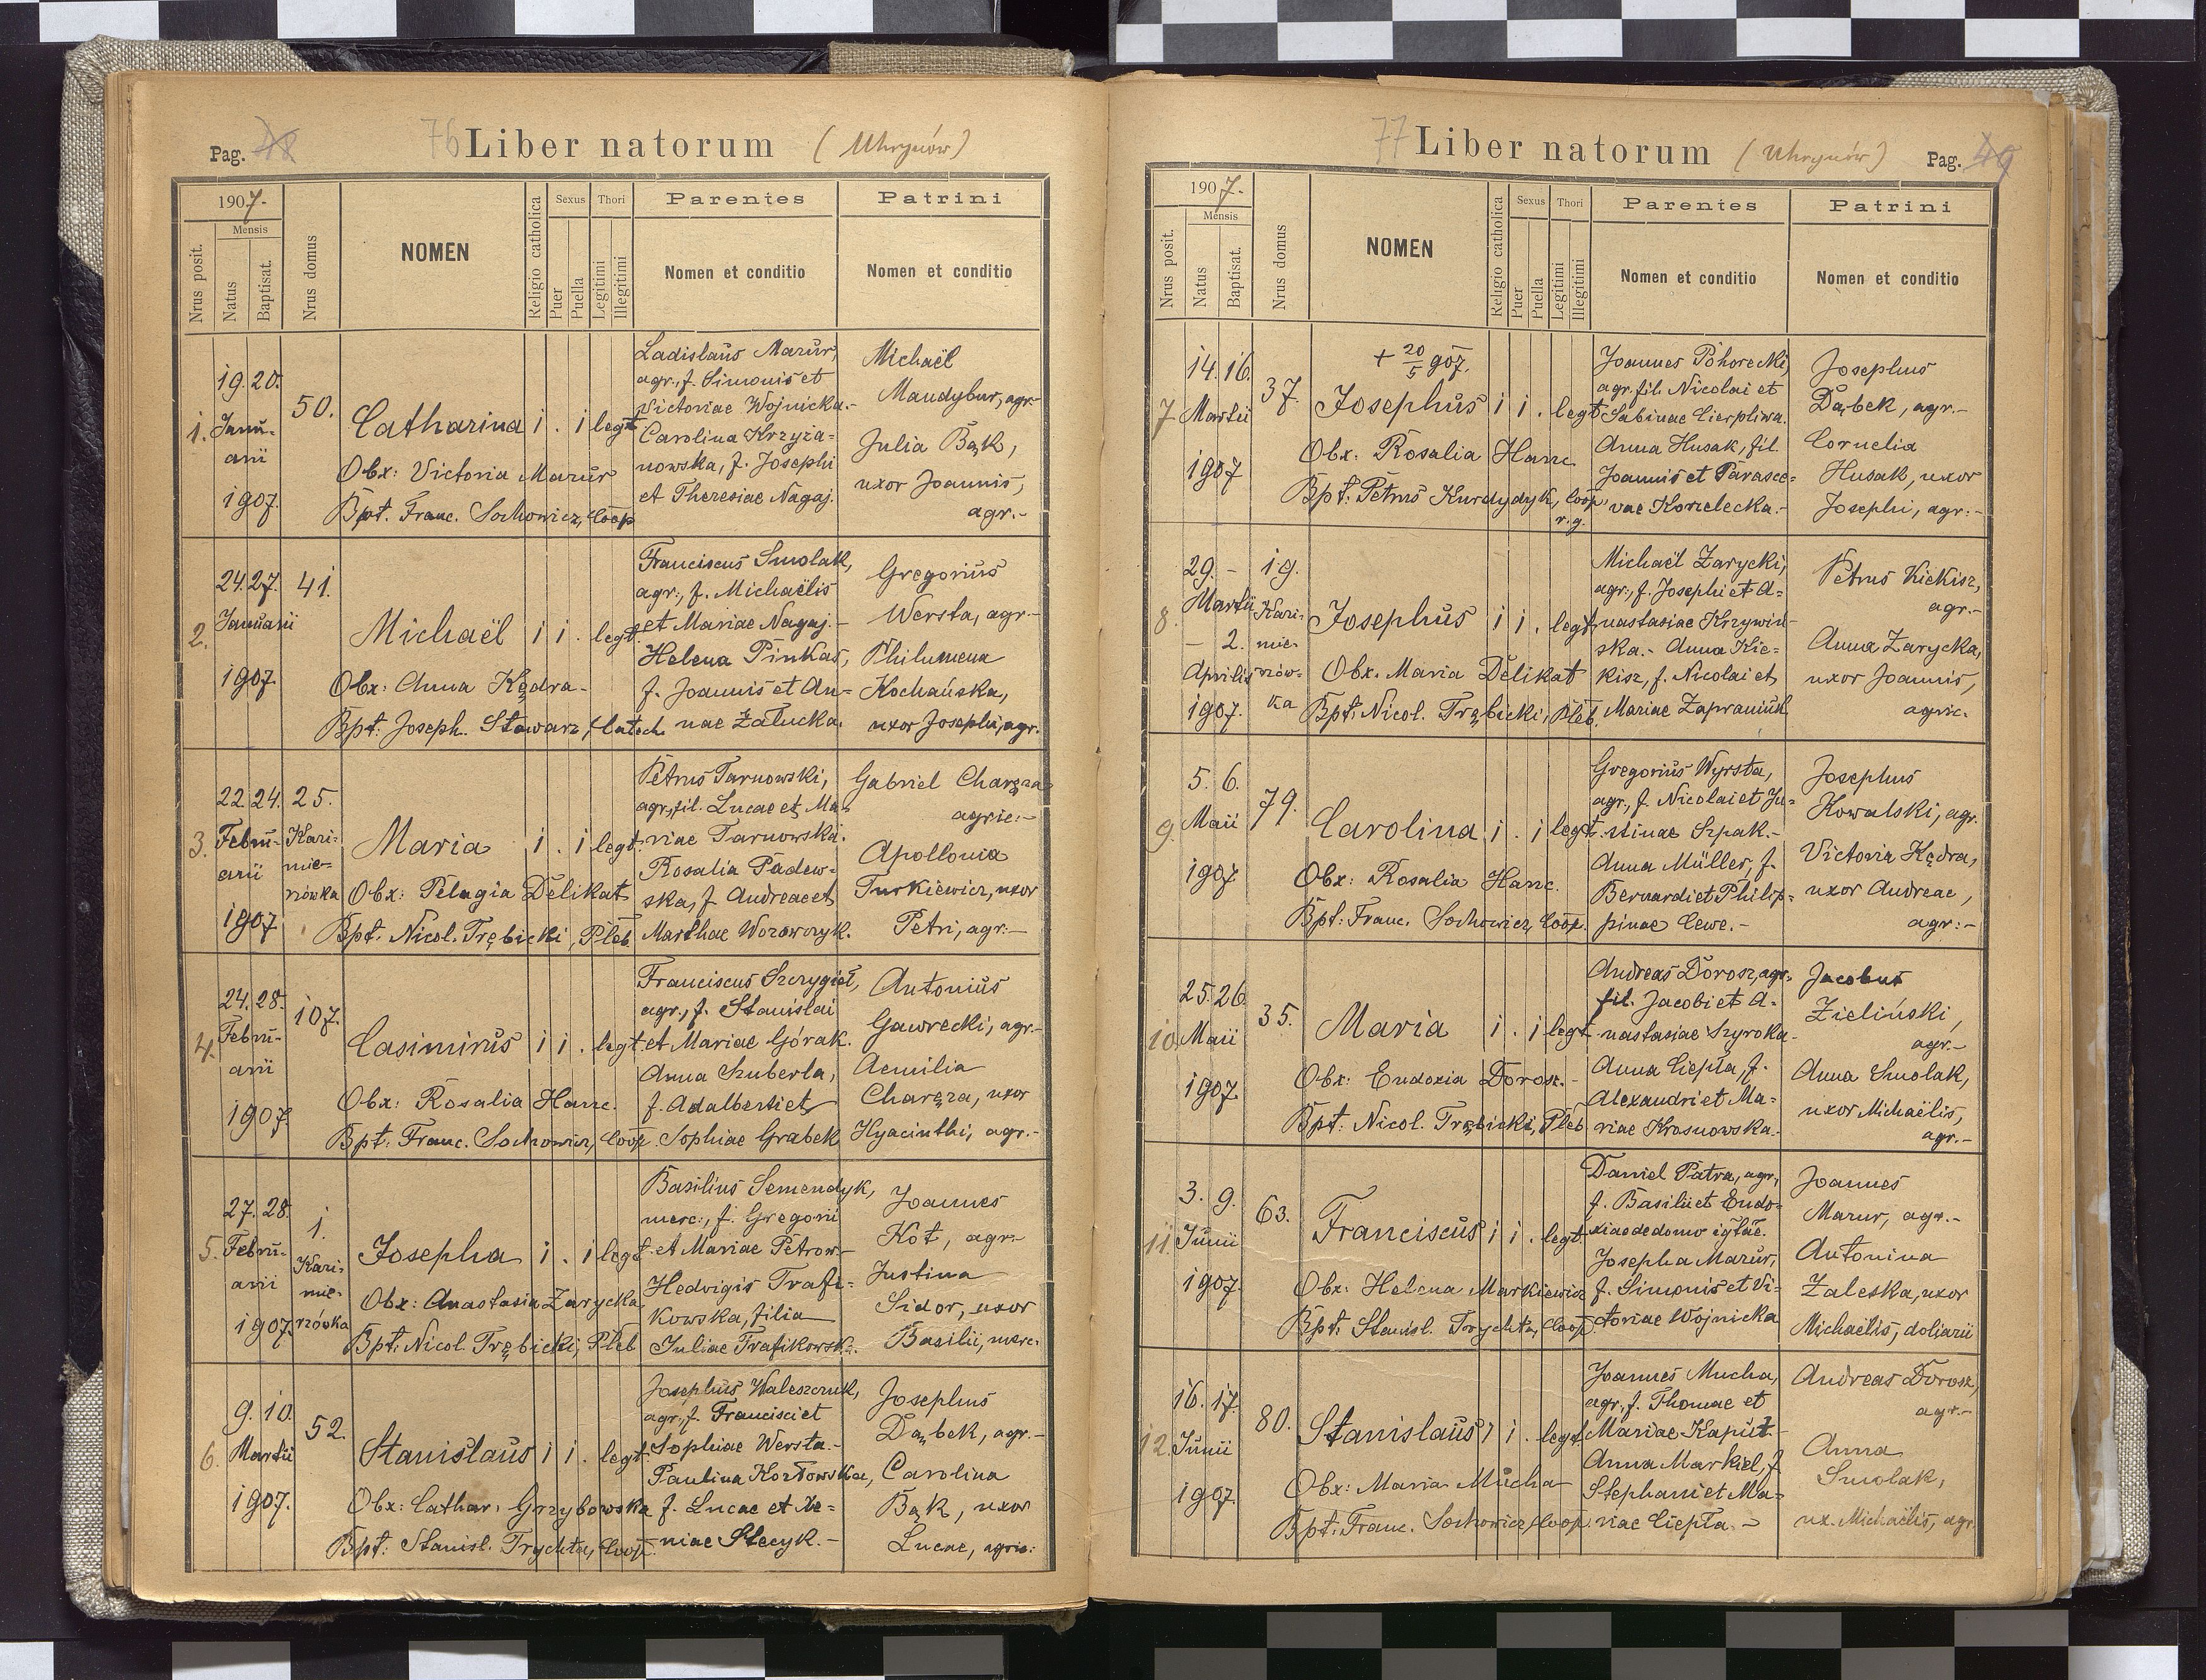 Pag. 48
76 Liber natorum (Uhrynów)
1907.
Nrus posit.
Mensis
Natus
Baptisat.
Nrus domus
NOMEN
Religio catholica
Sexus
Puer
Puella
Thori
Legitimi
Illegitimi
Parentes
Nomen et conditio
Patrini
Nomen et conditio
1.
19. 20.
Janu-
arii
1907.
50.
Catharina i . i legt.
Obx: Victoria Mazur
Bpt. Franc. Sochowicz, Coop
Ladislaus Mazur,
agr., f. Simonis et
Victoriae Wojnicka.-
Carolina Krzyża-
nowska, f. Josephi
et Theresiae Nagaj.
Michaël
Mandybur, agr.-
Julia Bąk,
uxor Joannis,
agr.-
2.
24. 27.
Januarii
1907.
41.
Michaël i i . legt.
Obx: Anna Kędra-
Bpt: Joseph. Stawarz, Catech.
Franciscus Smolak,
agr., f. Michaëlis
et Mariae Nagaj.-
Helena Pinkas,
f. Joannis et An-
nae Załucka.
Gregorius
Wersta, agr.-
Philumena
Kochańska,
uxor Josephi, agr.
3.
22. 24.
Febru-
arii
1907
25.
Kazi-
mie-
rówka
Maria i . i legt.
Obx: Pelagia Delikat
Bpt. Nicol. Trębicki, Pleb
Petrus Tarnowski,
agr., fil. Lucae et Ma-
riae Tarnowska.
Rosalia Padew-
ska, f. Andreae et
Marthae Wozowczyk.
Gabriel Charęza
agric.-
Apollonia
Turkiewicz, uxor
Petri, agr.-
4.
24. 28.
Febru-
arii
1907.
107.
Casimirus i i . legt.
Obx: Rosalia Hanc.
Bpt: Franc. Sochowicz, Coop.
Franciscus Szczygieł,
agr., f. Stanislai
et Mariae Górak.
Anna Szuberla,
f. Adalberti et
Sophiae Grabek
Antonius
Gawrecki, agr.-
Aemilia
Charęza, uxor
Hyacinthi, agr.-
5.
27. 28.
Febru-
arii
1907.
1.
Kazi-
mie-
rzówka
Josepha i . i legt.
Obx: Anastasia Zarycka
Bpt: Nicol. Trębicki, Pleb
Basilius Semendyk,
merc., f. Gregorii
et Mariae Petrow.-
Hedvigis Trafi-
kowska, filia
Juliae Trafikowsk.
Joannes
Kot, agr.-
Justina
Sidor, uxor
Basilii, merc.
6.
9. 10.
Martii
1907.
52.
Stanislaus i i . legt.
Obx: Cathar. Grzybowska
Bpt: Stanisl. Trychta, Coop.
Josephus Waleszczuk,
agr., f. Francisci et
Sophiae Wersta.-
Paulina Kozłowska,
f. Lucae et Xe-
niae Stecyk.-
Josephus
Dąbek, agr.-
Carolina
Bąk, uxor
Lucae, agric:
77 Liber natorum (Uhrynów)
Pag. 49
1907.
Nrus posit.
Mensis
Natus
Baptisat.
Nrus domus
NOMEN
Religio catholica
Sexus
Puer
Puella
Thori
Legitimi
Illegitimi
Parentes
Nomen et conditio
Patrini
Nomen et conditio
7
14. 16.
Martii
1907
37.
+ 20/5 907.
Josephus i i . legt.
Obx: Rosalia Hanc
Bpt: Petrus Kurdydyk, Coop.
r.g.
Joannes Pohorecki,
agr. fil. Nicolai et
Sabinae Cierpliwa.
Anna Husak, fil.
Joannis et Parasce-
vae Korzelecka.-
Josephus
Dąbek, agr.-
Cornelia
Husak, uxor
Josephi, agr:-
8.
29. -
Martii
- 2.
Aprilis
1907.
19.
Kazi-
mie-
rzów-
ka
Josephus i i . legt.
Obx. Maria Delikat
Bpt: Nicol. Trębicki, Pleb.
Michaël Zarycki,
agr., f. Josephi et A-
nastasiae Krzywiń-
ska.- Anna Kie-
kisz, f. Nicolai et
Mariae Zapraniuk
Petrus Kiekisz,
agr.-
Anna Zarycka,
uxor Joannis,
agric.
9.
5. 6.
Maii
1907
79.
Carolina i . i legt.
Obx: Rosalia Hanc.
Bpt: Franc. Sochowicz, Coop.
Gregorius Wyrsta,
agr., f. Nicolai et Ju-
stinae Szpak.-
Anna Müller, f.
Bernardi et Philip-
pinae Cewe.-
Josephus
Kowalski, agr.
Victoria Kędra,
uxor Andreae,
agr:-
10.
25. 26.
Maii
1907.
35.
Maria i . i legt
Obx: Eudoxia Dorosz.-
Bpt: Nicol. Trębicki, Pleb
Andreas Dorosz, agr.
fil. Jacobi et A-
nastasiae Szyroka-
Anna Ciepła, f.
Alexandri et Ma-
riae Krosnowska.
Jacobus
Zieliński,
agr.-
Anna Smolak,
uxor Michaëlis,
agr.-
11.
3. 9.
Junii
1907.
63.
Franciscus i i . legt.
Obx: Helena Markiewicz
Bpt: Stanisl. Trychta, Coop.
Daniel Patra, agr.,
f. Basilii et Eudo-
xiae de domo igtae.
Josepha Mazur,
f. Simonis et Vi-
ctoriae Wojnicka
Joannes
Mazur, agr.-
Antonina
Zaleska, uxor
Michaëlis, doliarii
12.
16. 17.
Junii
1907
80.
Stanislaus i i . legt.
Obx: Maria Mucha
Bpt: Franc. Sochowicz, Coop.
Joannes Mucha,
agr., f. Thomae et
Mariae Kaput.-
Anna Markiel, f.
Stephani et Ma-
riae Ciepła.-
Andreas Dorosz,
agr.-
Anna
Smolak,
ux. Michaëlis, agr.